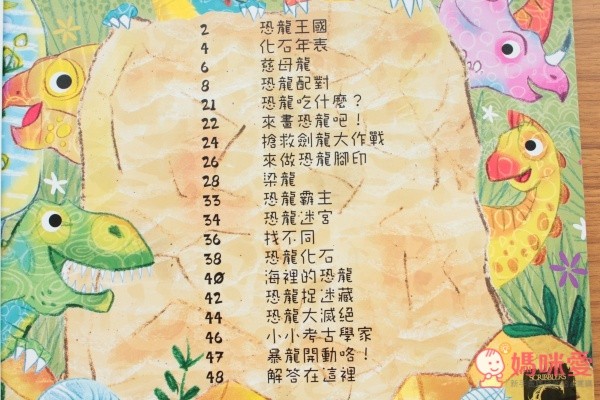 2 恐龍王國
4 化石年表
6 慈母龍
8 恐龍配對
21 恐龍吃什麼？
22 來畫恐龍吧！
24 搶救劍龍大作戰
26 來做恐龍腳印
28 梁龍
33 恐龍霸主
34 恐龍迷宮
36 找不同
38 恐龍化石
40 海裡的恐龍
42 恐龍捉迷藏
44 恐龍大滅絕
46 小小考古學家
47 暴龍開動咯！
48 解答在這裡
媽咪愛
SCRIBBLERS